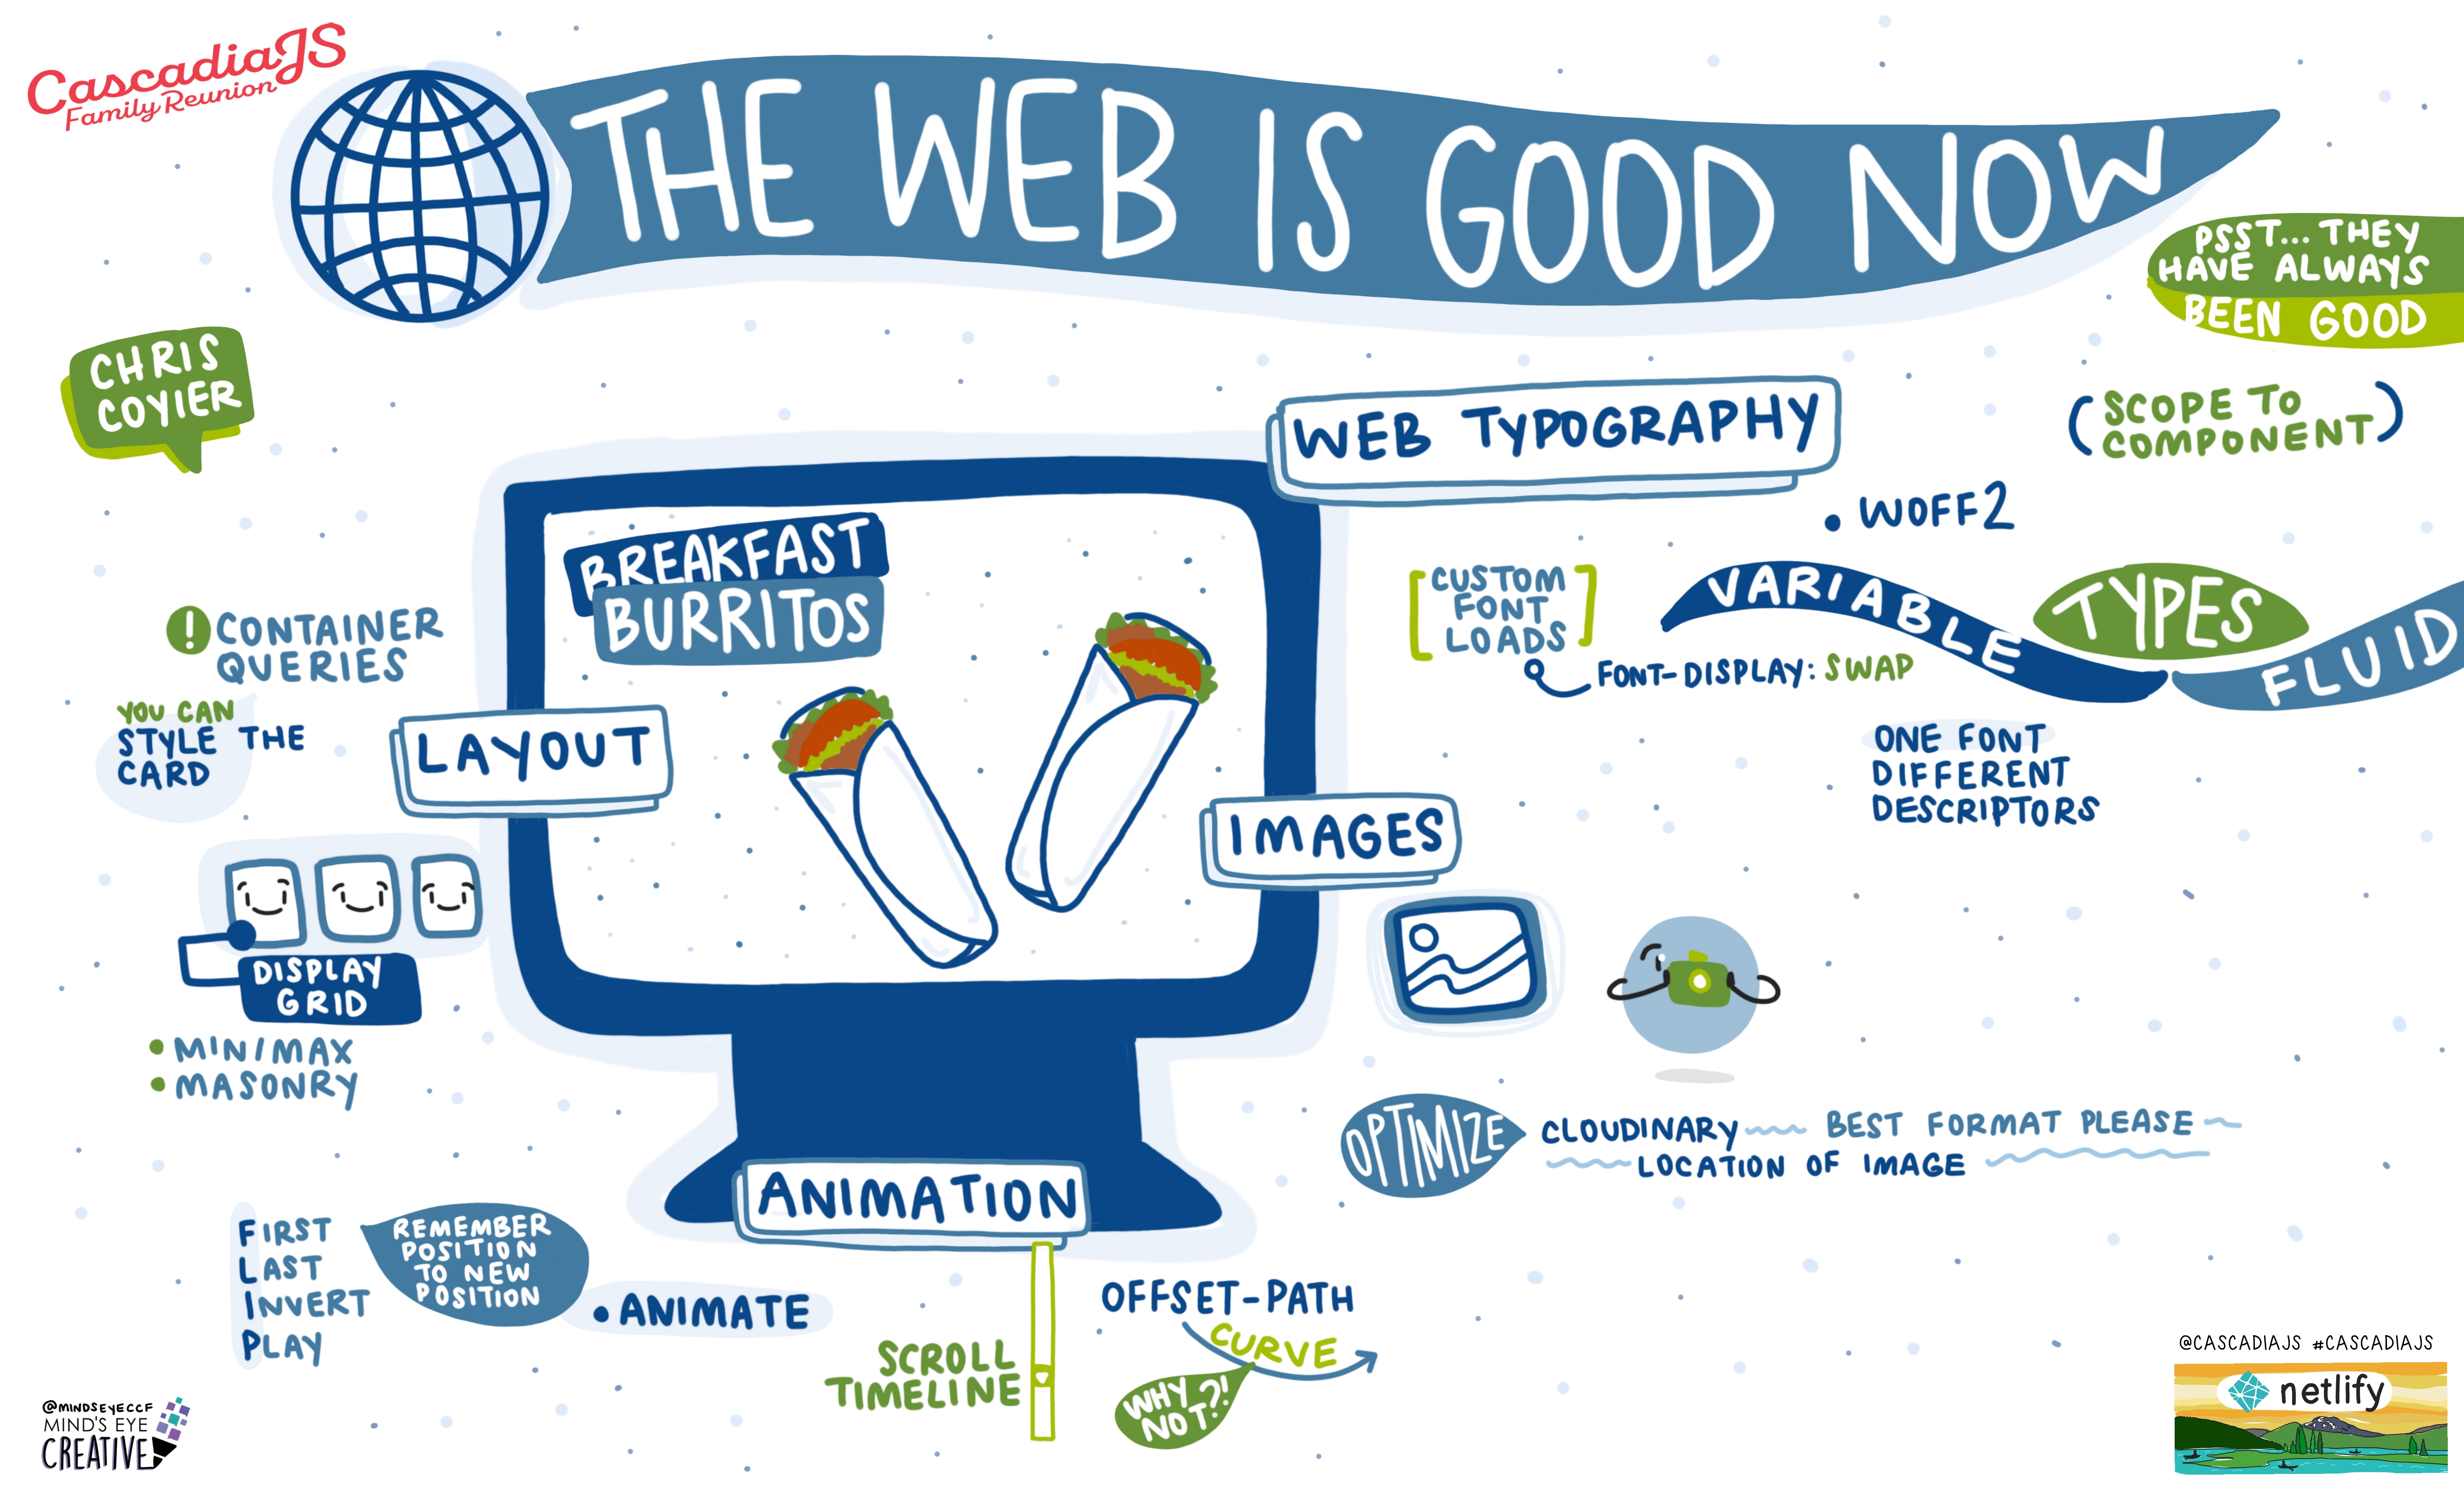 CascadiaJS
Family Reunion
THE WEB IS GOOD NOW
PSST... THEY
HAVE ALWAYS
BEEN GOOD
CHRIS
COYIER
WEB TYPOGRAPHY
(SCOPE TO
COMPONENT)
• WOFF2
[CUSTOM
FONT
LOADS]
FONT-DISPLAY: SWAP
VARIABLE
TYPES
FLUID
ONE FONT
DIFFERENT
DESCRIPTORS
BREAKFAST
BURRITOS
! CONTAINER
QUERIES
YOU CAN
STYLE THE
CARD
LAYOUT
DISPLAY
GRID
• MINIMAX
• MASONRY
IMAGES
OPTIMIZE
CLOUDINARY BEST FORMAT PLEASE
LOCATION OF IMAGE
ANIMATION
FIRST
LAST
INVERT
PLAY
REMEMBER
POSITION
TO NEW
POSITION
• ANIMATE
SCROLL
TIMELINE
OFFSET-PATH
CURVE
WHY
NOT?!
@MINDSEYECCF
MIND'S EYE
CREATIVE
@CASCADIAJS #CASCADIAJS
netlify